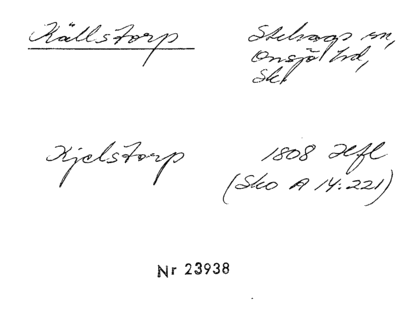 Källstorp Stehags sn,
Onsjö hd,
Sk.
Kjelstorp 1808 Hfl
(Sko A 14:221)
Nr 23938